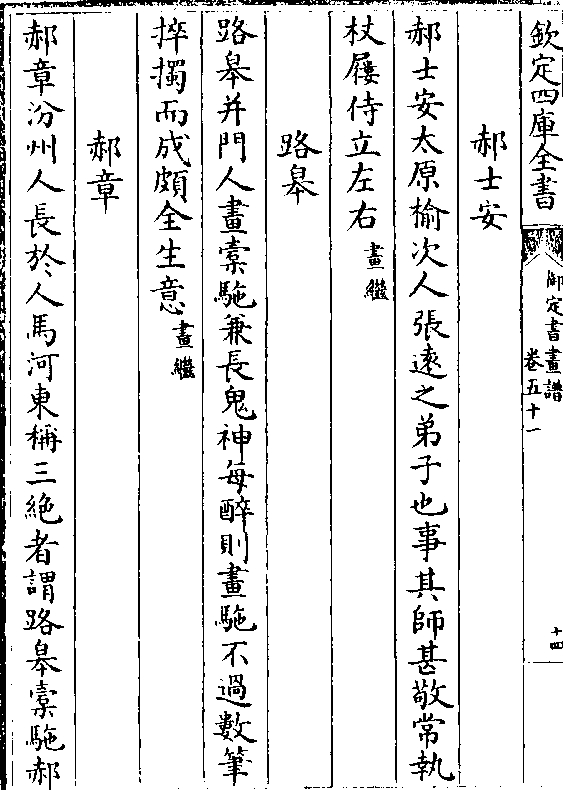 欽定四庫全書
御定書畫譜
卷五十一
十四
郝士安
郝士安太原榆次人張遠之弟子也事其師甚敬常執
杖屨侍立左右畫繼
路皋
路皋并門人畫槖駞兼長鬼神每醉則畫駞不過數筆
捽擉而成頗全生意畫繼
郝章
郝章汾州人長於人馬河東稱三絶者謂路皋槖駞郝